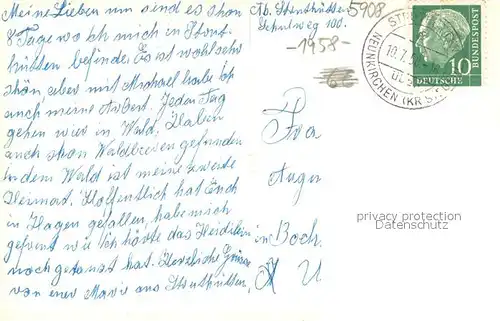 Meine Lieben nun sind es schon
8 Tage wo ich mich in Struthütten
befinde. Es ist wohl sehr
schön, aber mit Michael habe ich
auch meine Arbeit. Jeden Tag
gehen wir in Wald. Haben
auch schon Waldbeeren gefunden
in dem Wald ist meine zweite
Heimat. Hoffentlich hat Euch
in Hagen gefallen, habe mich
gefreut wie ich hörte das
noch getanzt hat. Herzliche Grüsse
von eure Marie aus Struthütten.
Ab. Struthütten
Schulweg 100.
5908
-1958-
Fra
in Boch
NEUNKIRCHEN (KR S
10.7.5
DEUTSCHE
BUNDESPOST
10
privacy protection
Datenschutz